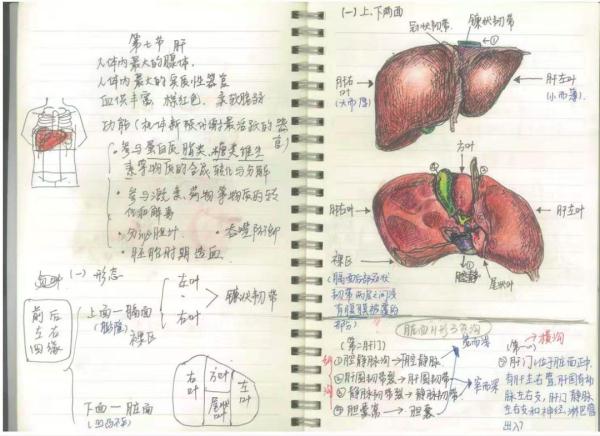 第七节 肝
人体内最大的腺体.
人体内最大的实质性器官
血供丰富，棕红色，柔软脆弱
功能(机体新陈代谢最活跃的器官)
·参与蛋白质、脂类、糖类维生
素等物质的合成、转化与分解
·参与激素、药物等物质的转
化和解毒
·分泌胆汁 ·吞噬防御
·胚胎时期造血
(一)形态
前后
左右
四缘
上面—膈面
(膨隆)
左叶
右叶
镰状韧带
裸区
下面—脏面
右叶
方叶
尾状叶
左叶
(一)上、下两面
冠状韧带
镰状韧带
①
肝右叶
(大而厚)
肝左叶
(小而薄)
方叶
肝右叶
肝左叶
尾状叶
裸区
(膈面后部冠状
韧带两层之间没
有腹膜覆盖的
部分)
脏面H形3条沟
(第二肝门)
①腔静脉沟→腔静脉
②肝圆韧带裂→肝圆韧带
③静脉韧带裂→静脉韧带
④胆囊窝→胆囊
(第一)
→横沟
⑤肝门:位于脏面正中,
有肝左右管,肝固有动
脉左右支,肝门静脉
左右支和神经、淋巴管
出入